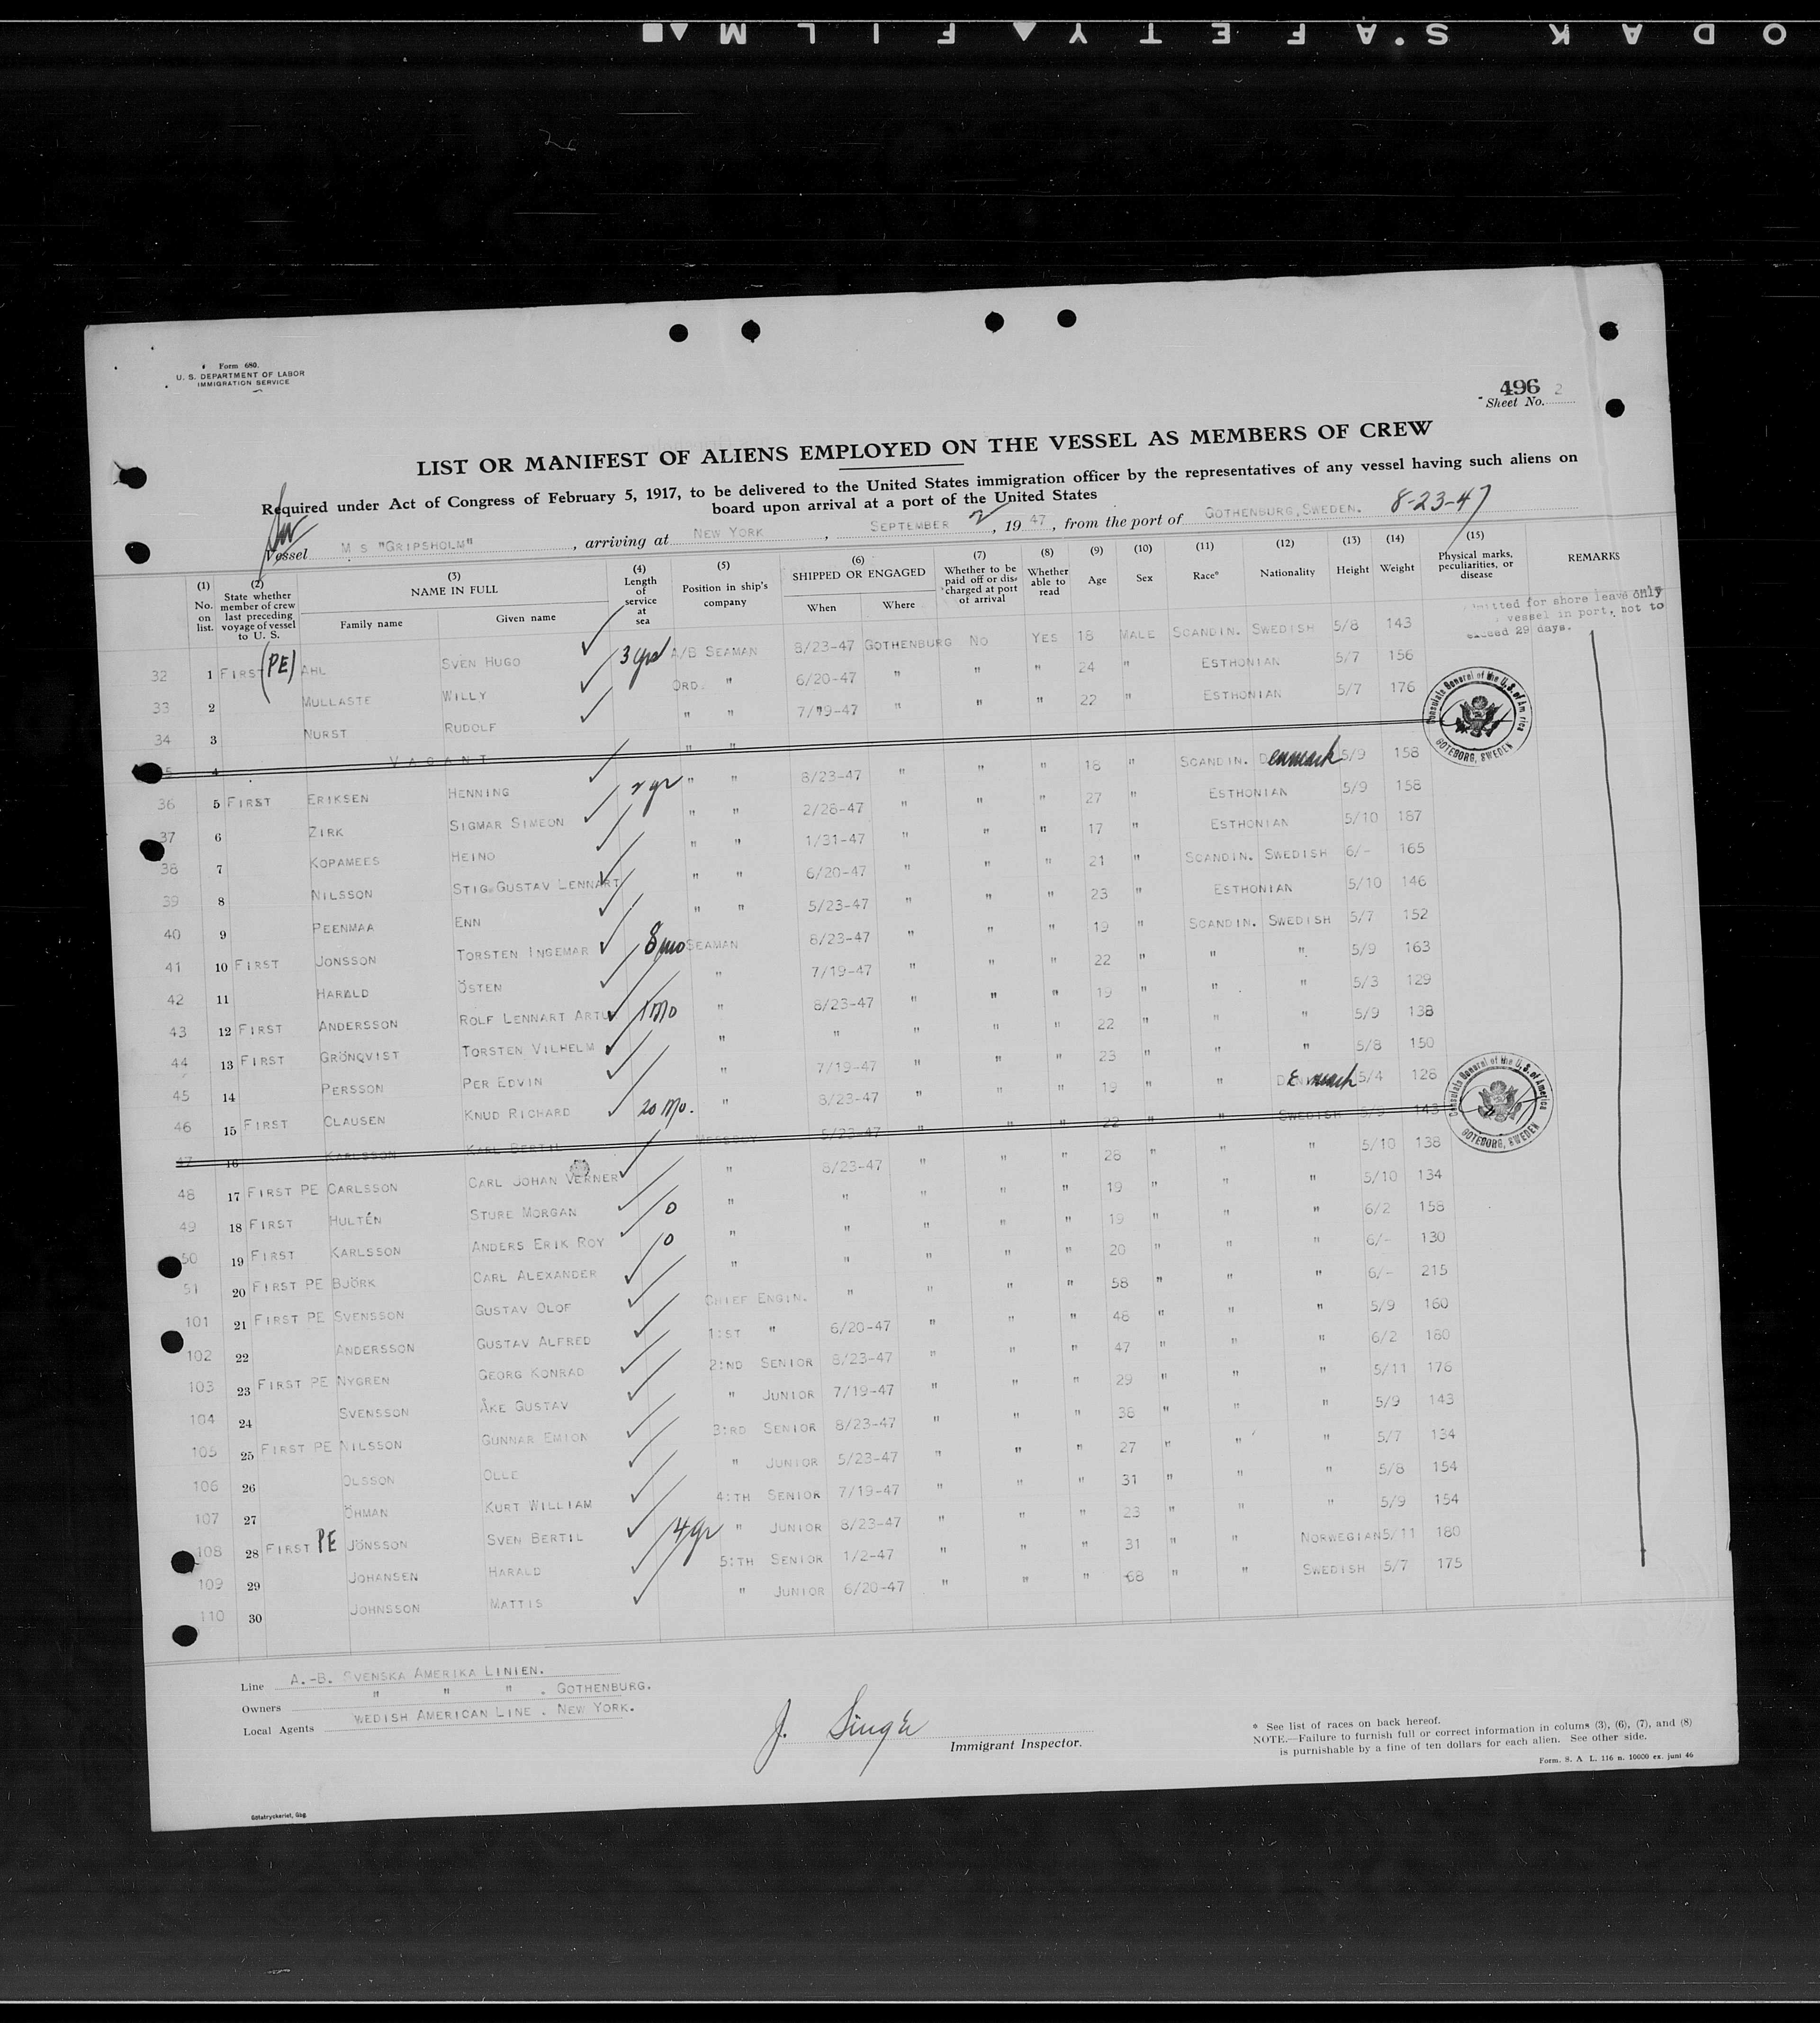 ODAK S'AFETY FILM
Form 680.
U. S. DEPARTMENT OF LABOR
IMMIGRATION SERVICE
496 2
Sheet No.
LIST OR MANIFEST OF ALIENS EMPLOYED ON THE VESSEL AS MEMBERS OF CREW
Required under Act of Congress of February 5, 1917, to be delivered to the United States immigration officer by the representatives of any vessel having such aliens on
board upon arrival at a port of the United States
Vessel M S "GRIPSHOLM", arriving at NEW YORK, SEPTEMBER 2, 1947, from the port of GOTHENBURG, SWEDEN. 8-23-47
(1) No. on list. (2) State whether member of crew last preceding voyage of vessel to U. S. (3) NAME IN FULL Family name Given name (4) Length of service at sea (5) Position in ship's company (6) SHIPPED OR ENGAGED When Where (7) Whether to be paid off or discharged at port of arrival (8) Whether able to read (9) Age (10) Sex (11) Race* (12) Nationality (13) Height (14) Weight (15) Physical marks, peculiarities, or disease REMARKS
mitted for shore leave only
vessel in port, not to
exceed 29 days.
32 1 FIRST (PE) AHL SVEN HUGO 3 yrs A/B SEAMAN 8/23-47 GOTHENBURG NO YES 18 MALE SCANDIN. SWEDISH 5/8 143
33 2 MULLASTE WILLY ORD. " 6/20-47 " " " 24 " ESTHONIAN 5/7 156
34 3 NURST RUDOLF " " 7/19-47 " " " 22 " ESTHONIAN 5/7 176
4 VACANT " "
36 5 FIRST ERIKSEN HENNING 2 yr " " 8/23-47 " " " 18 " SCANDIN. Denmark 5/9 158
37 6 ZIRK SIGMAR SIMEON " " 2/28-47 " " " 27 " ESTHONIAN 5/9 158
38 7 KOPAMEES HEINO " " 1/31-47 " " " 17 " ESTHONIAN 5/10 187
39 8 NILSSON STIG GUSTAV LENNART " " 6/20-47 " " " 21 " SCANDIN. SWEDISH 6/- 165
40 9 PEENMAA ENN " " 5/23-47 " " " 23 " ESTHONIAN 5/10 146
41 10 FIRST JONSSON TORSTEN INGEMAR 8 mo SEAMAN 8/23-47 " " " 19 " SCANDIN. SWEDISH 5/7 152
42 11 HARALD ÖSTEN " 7/19-47 " " " 22 " " " 5/9 163
43 12 FIRST ANDERSSON ROLF LENNART ARTUR 1 mo " 8/23-47 " " " 19 " " " 5/3 129
44 13 FIRST GRÖNQVIST TORSTEN VILHELM " " " " " 22 " " " 5/9 138
45 14 PERSSON PER EDVIN " 7/19-47 " " " 23 " " " 5/8 150
46 15 FIRST CLAUSEN KNUD RICHARD 20 mo. " 8/23-47 " " " 19 " " Denmark 5/4 128
47 16 KARLSSON KARL BERTIL MESSBOY 5/23-47 " " " 22 " " SWEDISH 5/9 143
48 17 FIRST PE CARLSSON CARL JOHAN VERNER " 8/23-47 " " " 28 " " " 5/10 138
49 18 FIRST HULTÉN STURE MORGAN " " " " " 19 " " " 5/10 134
50 19 FIRST KARLSSON ANDERS ERIK ROY 0 " " " " " 19 " " " 6/2 158
51 20 FIRST PE BJÖRK CARL ALEXANDER 0 " " " " " 20 " " " 6/- 130
101 21 FIRST PE SVENSSON GUSTAV OLOF CHIEF ENGIN. " " " " 58 " " " 6/- 215
102 22 ANDERSSON GUSTAV ALFRED 1:ST " 6/20-47 " " " 48 " " " 5/9 160
103 23 FIRST PE NYGREN GEORG KONRAD 2:ND SENIOR 8/23-47 " " " 47 " " " 6/2 180
104 24 SVENSSON ÅKE GUSTAV " JUNIOR 7/19-47 " " " 29 " " " 5/11 176
105 25 FIRST PE NILSSON GUNNAR EMION 3:RD SENIOR 8/23-47 " " " 38 " " " 5/9 143
106 26 OLSSON OLLE " JUNIOR 5/23-47 " " " 27 " " " 5/7 134
107 27 ÖHMAN KURT WILLIAM 4:TH SENIOR 7/19-47 " " " 31 " " " 5/8 154
108 28 FIRST PE JÖNSSON SVEN BERTIL 4 yr " JUNIOR 8/23-47 " " " 23 " " " 5/9 154
109 29 JOHANSEN HARALD 5:TH SENIOR 1/2-47 " " " 31 " " NORWEGIAN 5/11 180
110 30 JOHNSSON MATTIS " JUNIOR 6/20-47 " " " 68 " " SWEDISH 5/7 175
Consulate General of the U.S. of America
GÖTEBORG, SWEDEN
Consulate General of the U.S. of America
GÖTEBORG, SWEDEN
Line A.-B. SVENSKA AMERIKA LINIEN.
Owners " " " . GOTHENBURG.
Local Agents WEDISH AMERICAN LINE . NEW YORK.
Immigrant Inspector.
* See list of races on back hereof.
NOTE.—Failure to furnish full or correct information in colums (3), (6), (7), and (8)
is purnishable by a fine of ten dollars for each alien. See other side.
Form. S. A L. 116 n. 10000 ex. juni 46
Götatryckeriet, Gbg